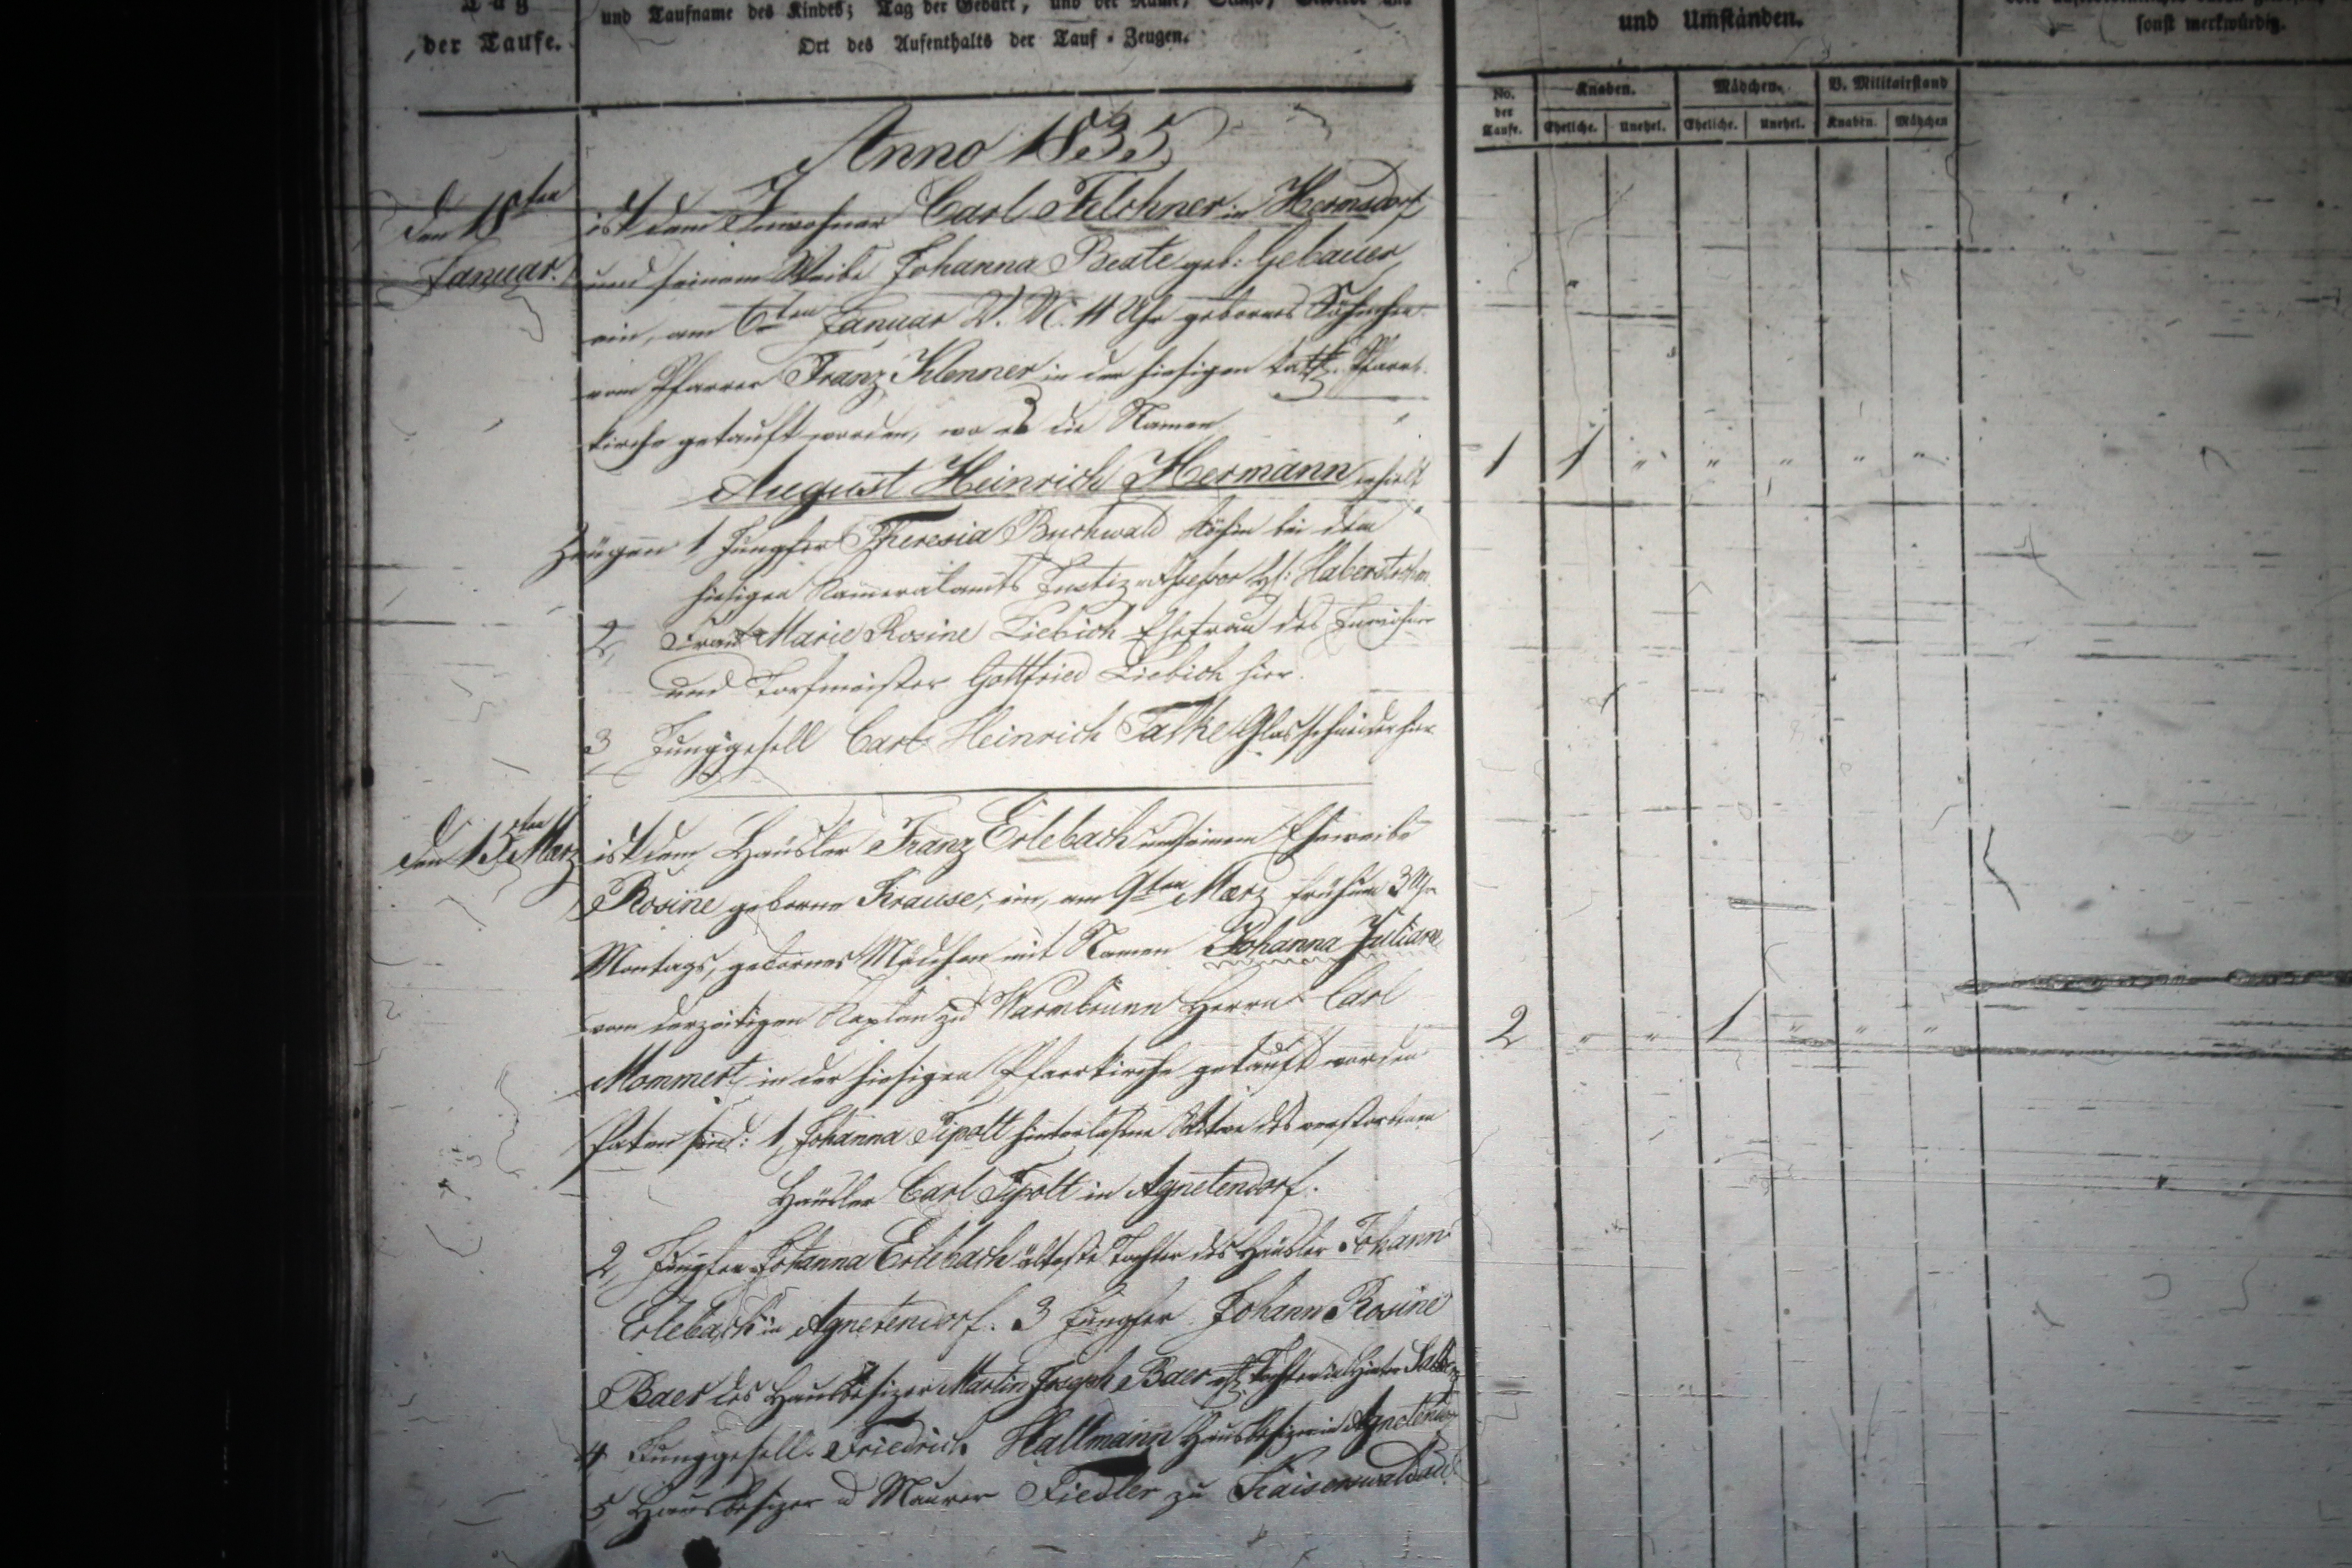 Tag
der Taufe.
und Taufname des Kindes; Tag der Geburt, und der Name, Stand,
Ort des Aufenthalts der Tauf-Zeugen.
und Umständen.
sonst merkwürdig.
No. der Taufe.
Knaben.
Mädchen.
V. Militairstand
Eheliche.
Unehel.
Eheliche.
Unehel.
Knaben.
Mädchen
Anno 1835
den 18ten
Januar.
ist dem Inwohner Carl Felchner in Hermsdorf
und seinem Weibe Johanna Beate geb: Gebauer,
ein, am 6ten Januar V. M. 11 Uhr gebornes Söhnchen
vom Pfarrer Franz Klenner in der hiesigen kath. Pfarr-
kirche getauft worden, wo es die Namen
August Heinrich Hermann erhielt
1 1 " " " " "
Zeugen 1 Jungfer Theresia Buchwald Köchin bei dem
hiesigen Kameralamts Justiz-Assessor H:
2, Frau Marie Rosine Liebich Ehefrau des Inwohner
und Torfmeister Gottfried Liebich hier.
3 Junggesell Carl Heinrich Talke Glasschneider hier
den 15ten Maerz
ist dem Häusler Franz Erlebach und seinem Eheweibe
Rosine geborne Krause, ein, am 9ten Maerz früh um 3 Uhr
Montags, gebornes Mädchen mit Namen Johanna Juliane
vom derzeitigen Kaplan zu Warmbrunn Herrn Carl
Mommert in der hiesigen Pfarrkirche getauft worden
2 " " 1 " " "
Paten sind: 1, Johanna Tipolt hinterlaßne Witwe des verstorbenen
Häusler Carl Tipolt in Agnetendorf.
2, Jungfer Johanna Erlebach älteste Tochter des Häusler Johann
Erlebach in Agnetendorf. 3 Jungfer Johann Rosine
Baer des Hausbesizer Martin Joseph Baer Tochter in Hinter
4 Junggesell Friedrich Hallmann Hausbesizer in Agnetendorf
5, Hausbesizer u Maurer Fiedler zu Kaiserswaldau